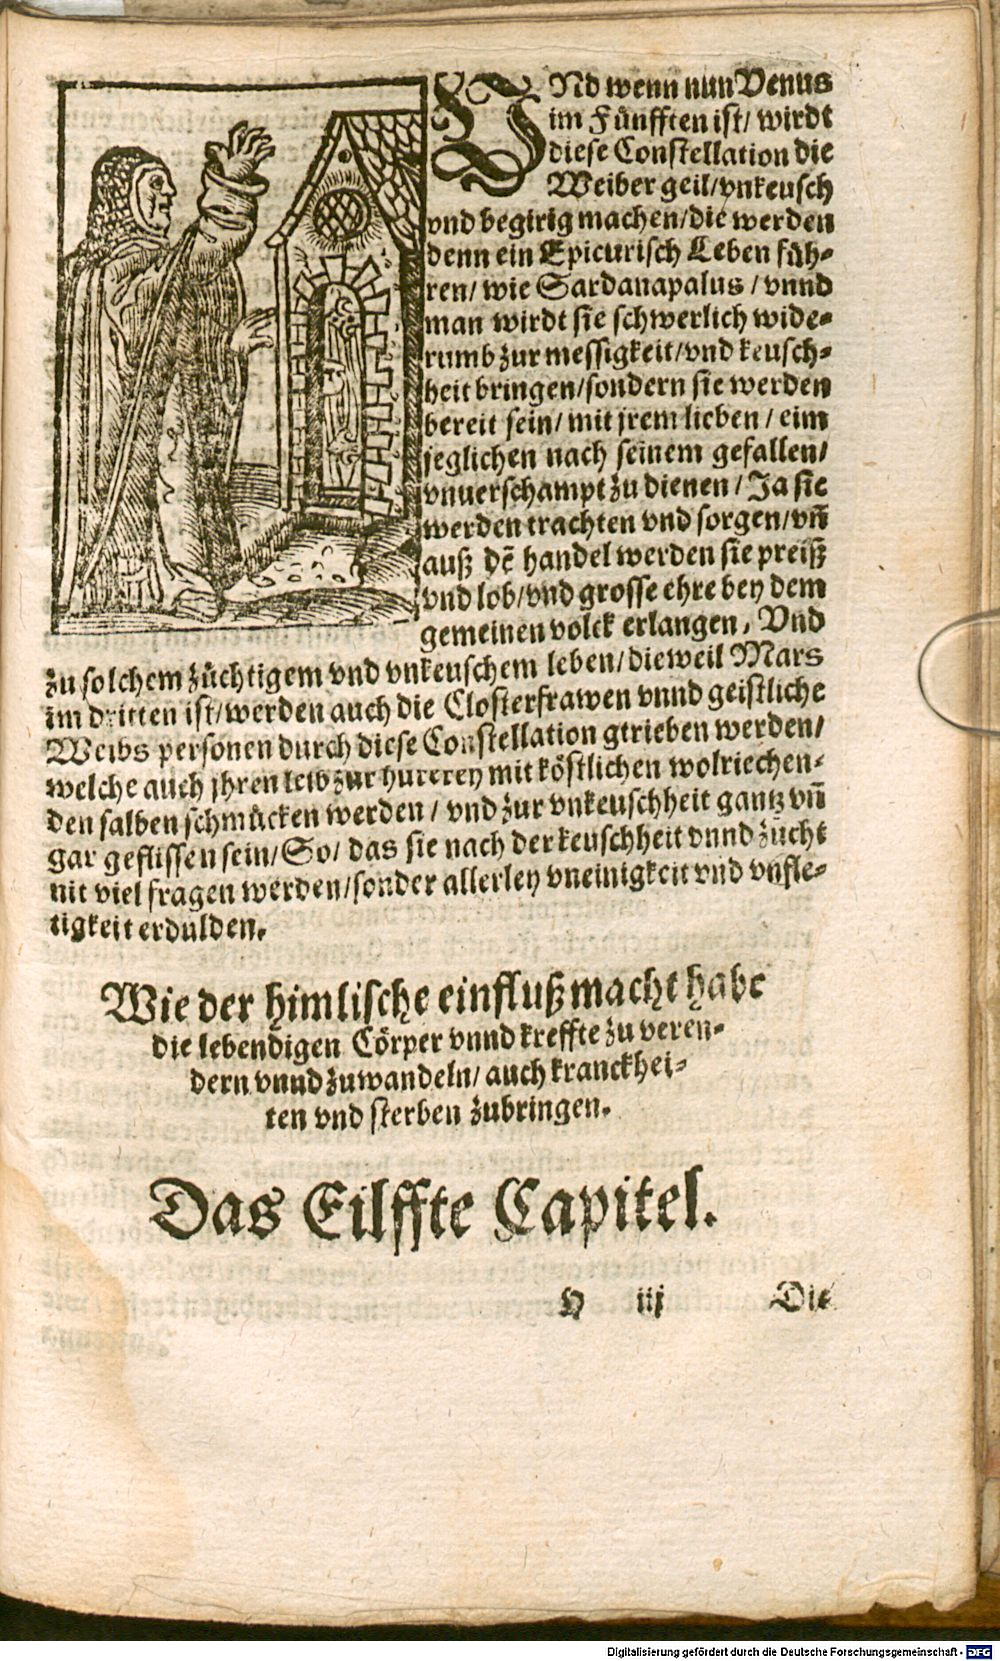 VNd wenn nun Venus
im Fünfften ist/ wirdt
diese Constellation die
Weiber geil/vnkeusch
vnd begirig machen/die werden
denn ein Epicurisch Leben füh-
ren/ wie Sardanapalus / vnnd
man wirdt sie schwerlich wide-
rumb zur messigkeit/vnd keusch-
heit bringen/sondern sie werden
bereit sein/ mit jrem lieben / eim
jeglichen nach seinem gefallen/
vnuerschampt zu dienen / Ja sie
werden trachten vnd sorgen/vñ
auß dē handel werden sie preiß
vnd lob/vnd grosse ehre bey dem
gemeinen volck erlangen. Vnd
zu solchem züchtigem vnd vnkeuschem leben/dieweil Mars
im dritten ist/werden auch die Closterfrawen vnnd geistliche
Weibs personen durch diese Constellation gtrieben werden/
welche auch jhren leib zur hurerey mit köstlichen wolriechen-
den salben schmücken werden / vnd zur vnkeuschheit gantz vñ
gar geflissen sein/So/ das sie nach der keuschheit vnnd zucht
nit viel fragen werden/sonder allerley vneinigkeit vnd vnfle-
tigkeit erdulden.
Wie der himlische einfluß macht habe
die lebendigen Cörper vnnd kreffte zu veren-
dern vnnd zuwandeln/ auch kranckhei-
ten vnd sterben zubringen.
Das Eilffte Capitel.
H iij Die
Digitalisierung gefördert durch die Deutsche Forschungsgemeinschaft - DFG